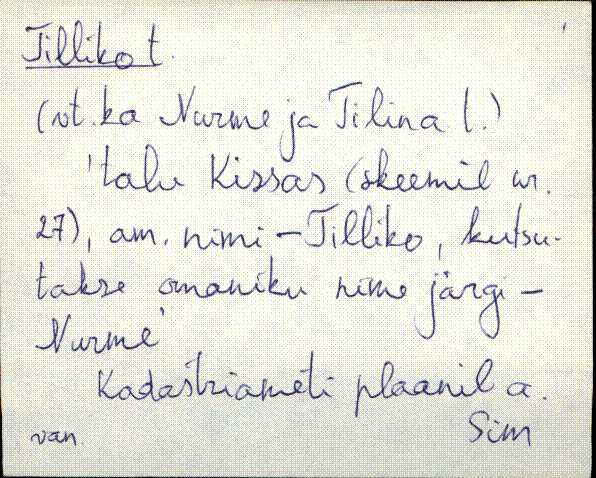 Tilliko t.
(vt. ka Nurme ja Tilina t.)
'talu Kissas (skeemil nr.
27), am. nimi – Tilliko, kutsu-
takse omaniku nime järgi –
Nurme'
Kadastriameti plaanil a.
van. Sim